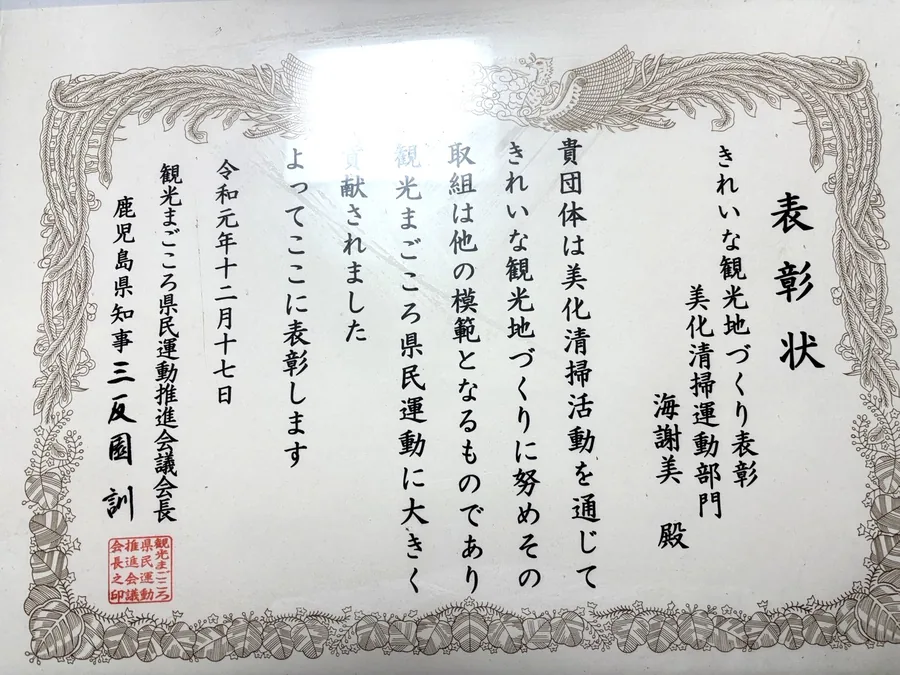 表彰状
きれいな観光地づくり表彰
美化清掃運動部門
海謝美 殿
貴団体は美化清掃活動を通じて
きれいな観光地づくりに努めその
取組は他の模範となるものであり
観光まごころ県民運動に大きく
貢献されました
よってここに表彰します
令和元年十二月十七日
観光まごころ県民運動推進会議会長
鹿児島県知事 三反園 訓
観光まごころ
県民運動
推進会議
会長之印